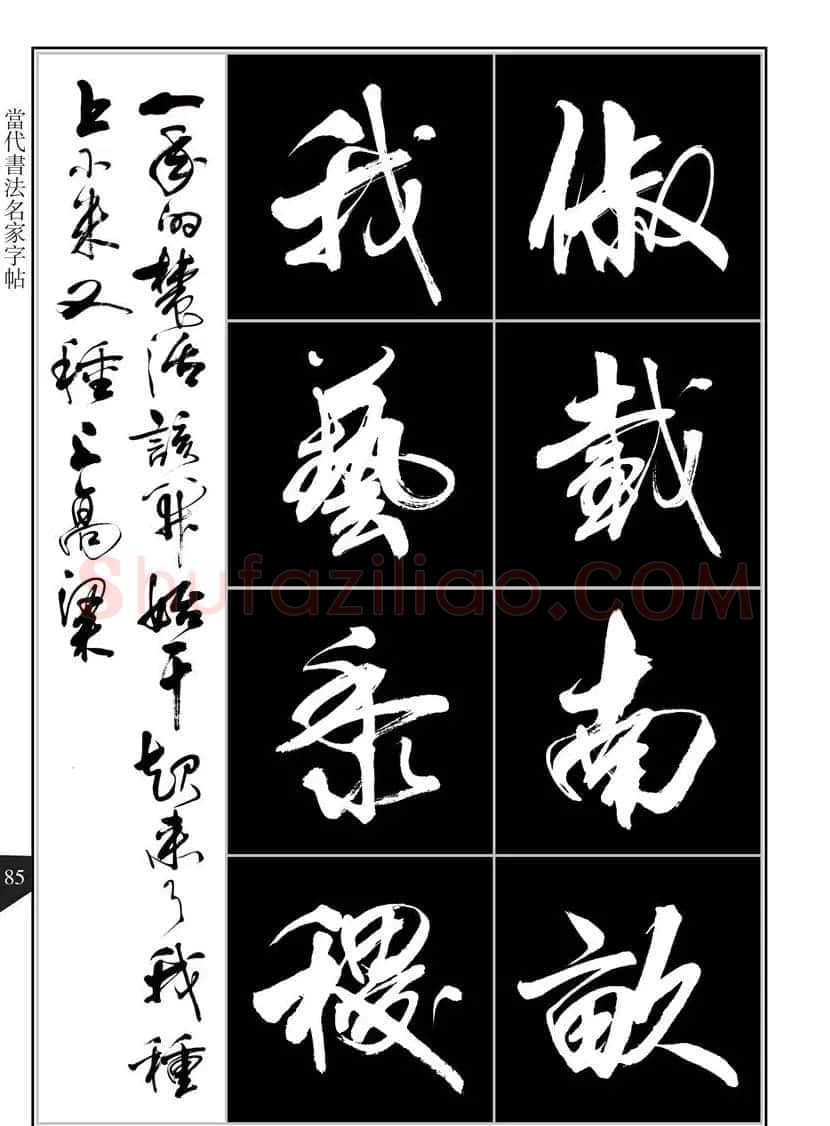 俶載南畝
我藝黍稷
一年的農活該開始干起來了我種
上小米又種上高粱
當代書法名家字帖
85
Shufaziliao.COM